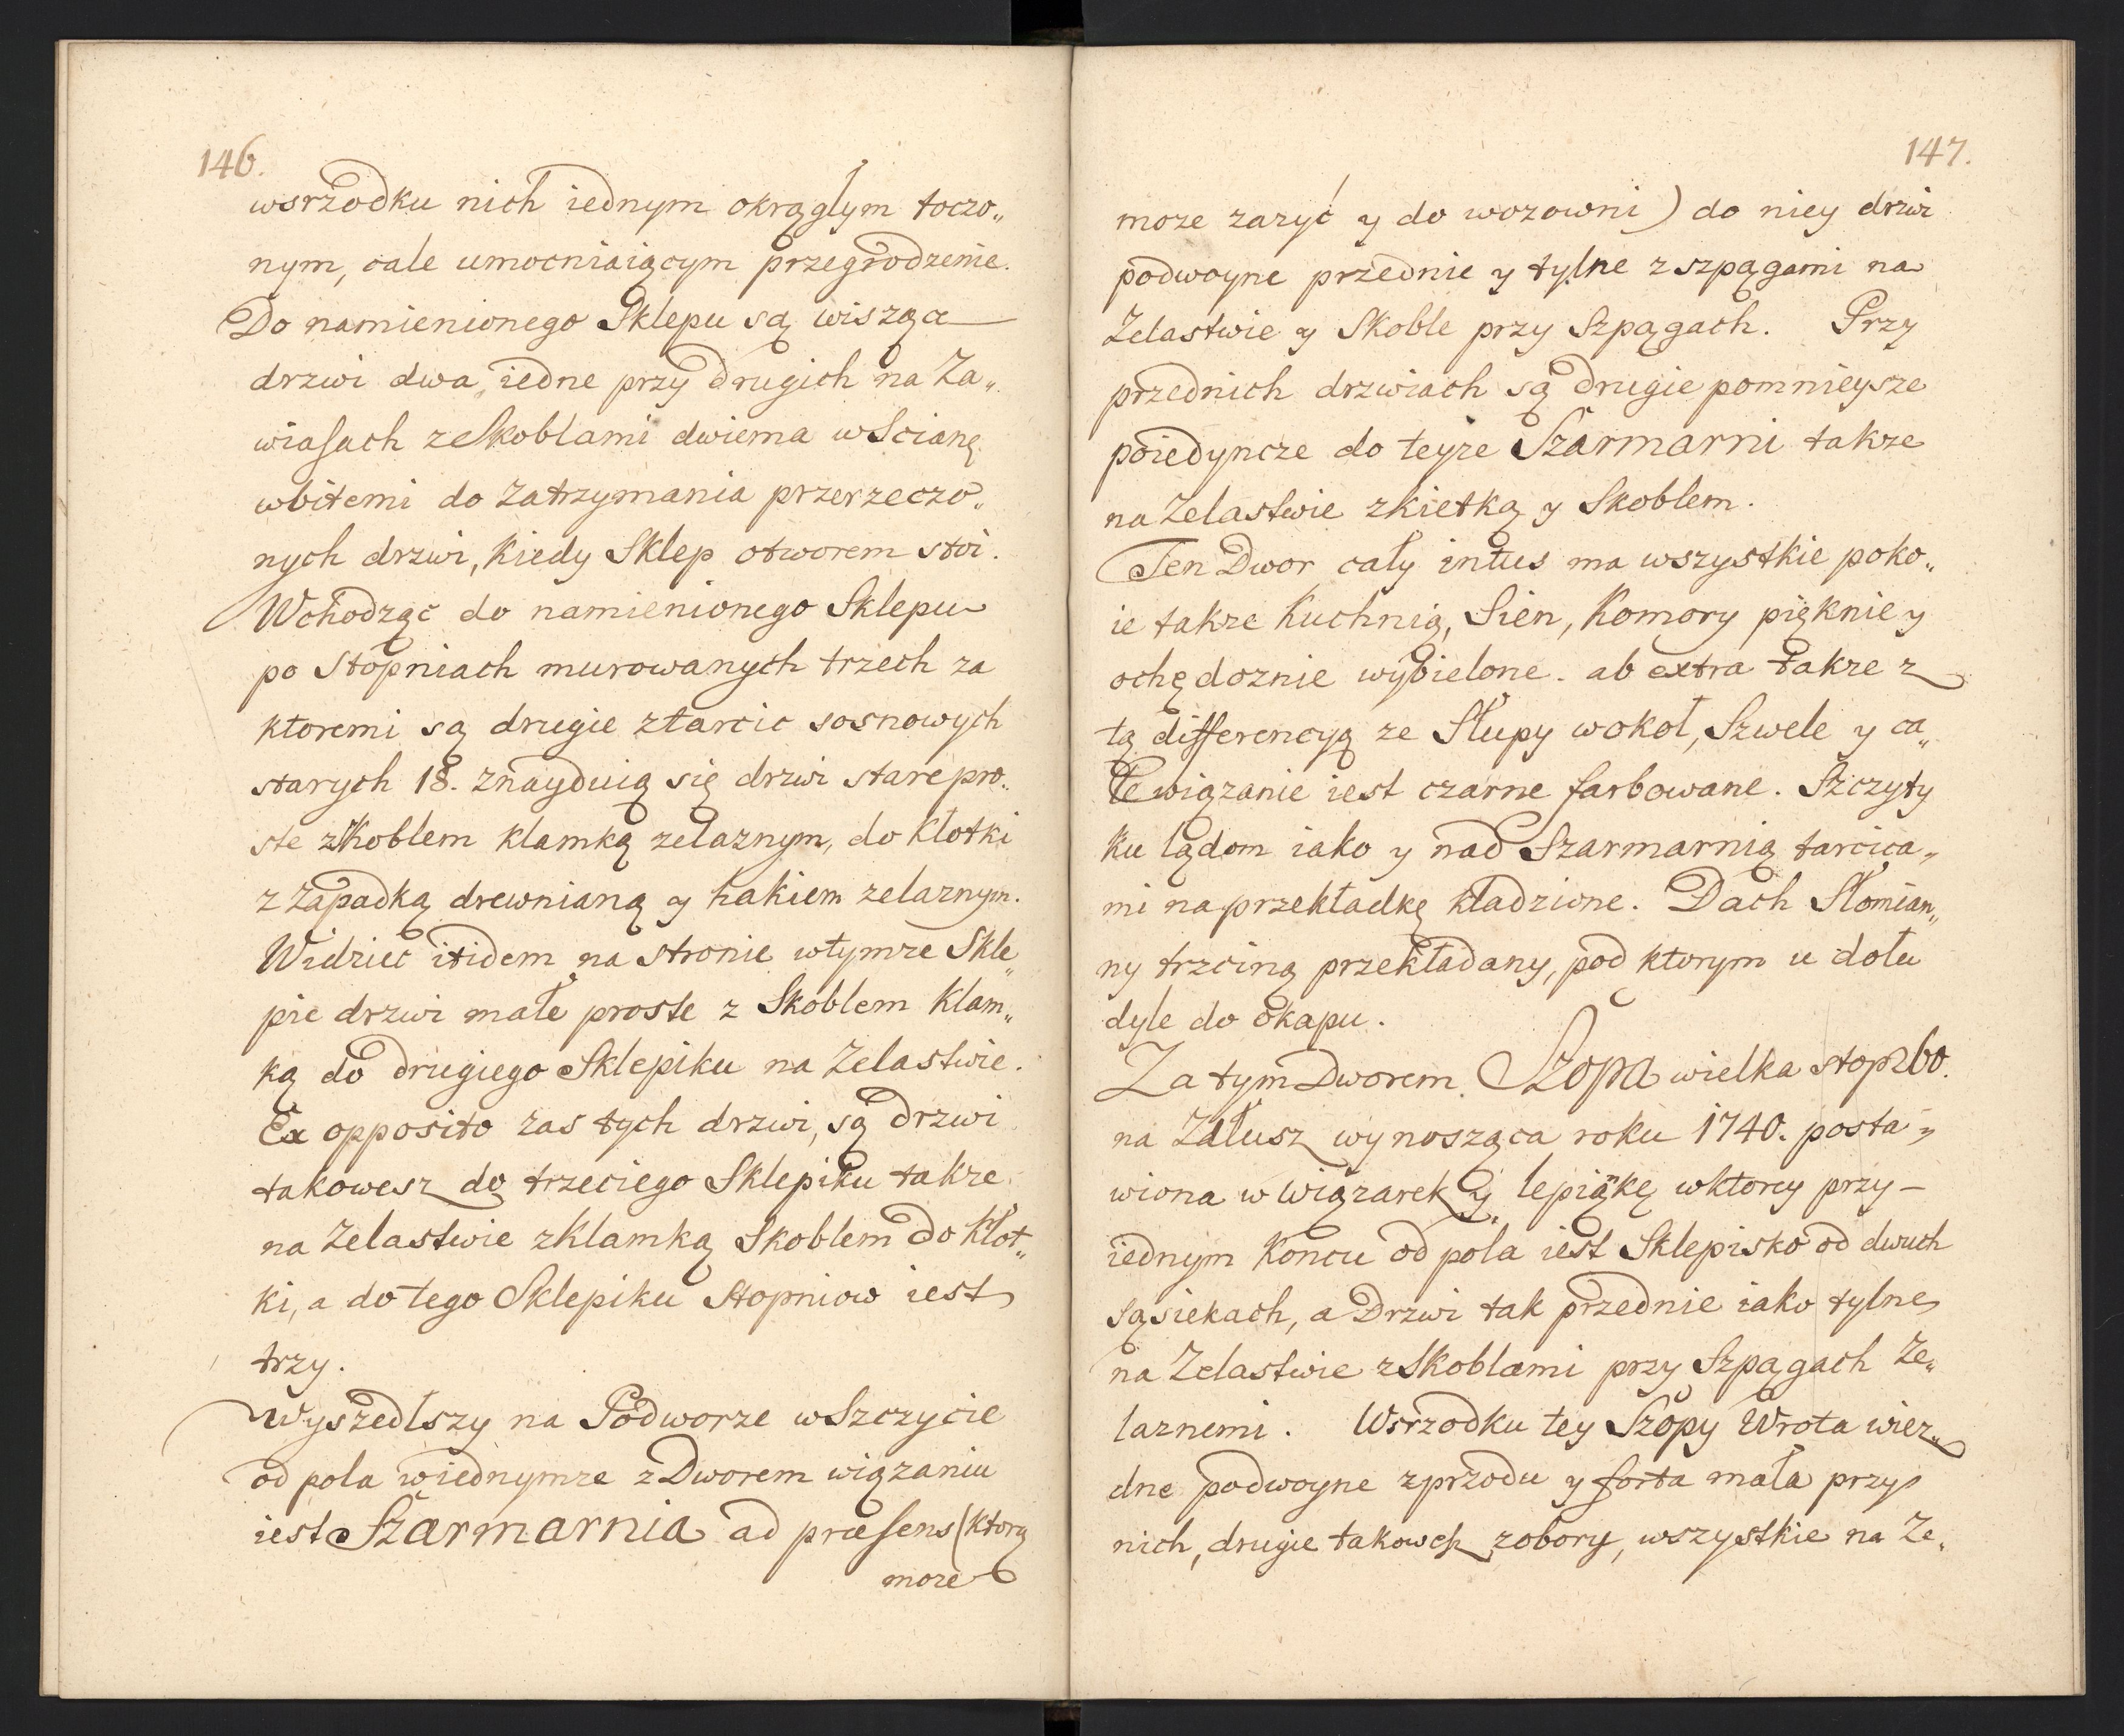 146.
wsrzodku nich iednym okrągłym toczo„
nym, cale umocniaiącym przegrodzenie.
Do namienionego Sklepu są wiszące
drzwi dwa, iedne przy drugich na Za„
wiasach ze Skoblami dwiema w Scianę
wbitemi do zatrzymania przerzeczo„
nych drzwi, kiedy Sklep otworem stoi.
Wchodząc do namienionego Sklepu
po Stopniach murowanych trzech za
ktoremi są drugie z tarcic sosnowych
starych 18. znayduią się drzwi stare pro„
ste z Skoblem klamką zelaznym, do kłotki
z Zapadką drewnianą y hakiem zelaznym.
Widziec itidem na stronie w tymze Skle„
pie drzwi małe proste z Skoblem klam„
ką do drugiego Sklepiku na Zelastwie.
Ex opposito zas tych drzwi, są drzwi
takowesz do trzeciego Sklepiku takze
na Zelastwie z klamką Skoblem do kłot„
ki, a do tego Sklepiku Stopniow iest
trzy.
Wyszedłszy na Podworze w Szczycie
od pola w iednymze z Dworem wiązaniu
iest Szarmarnia ad præsens (ktorą
moze
147.
moze zazyć y do wozowni) do niey drzwi
podwoyne przednie y tylne z szpągami na
Zelastwie y Skoble przy Szpągach. Przy
przednich drzwiach są drugie pomnieysze
poiedyncze do teyze Szarmarni takze
na Zelastwie z kietką y Skoblem.
Ten Dwor cały intus ma wszystkie poko„
ie takze Kuchnią, Sien, Komory pięknie y
ochędoznie wybielone. ab extra takze z
tą differencyą ze Słupy wokoł, Szwele y ca„
łe wiązanie iest czarne farbowane. Szczyty
ku lądom iako y nad Szarmarnią tarcica„
mi na przekładkę kładzione. Dach Słomian„
ny trzciną przekładany, pod ktorym u dołu
dyle do okapu.
Za tym Dworem Szopa wielka stop 260.
na Załusz wynosząca roku 1740. posta„
wiona w wiązarek y lepiąkę w ktorey przy
iednym Koncu od pola iest Sklepisko od dwuch
sąsiekach, a Drzwi tak przednie iako tylne
na Zelastwie z Skoblami przy Szpągach Ze„
laznemi. Wsrzodku tey Szopy Wrota wiez„
dne podwoyne z przodu y forta mała przy
nich, drugie takowesz z obory, wszystkie na Ze„